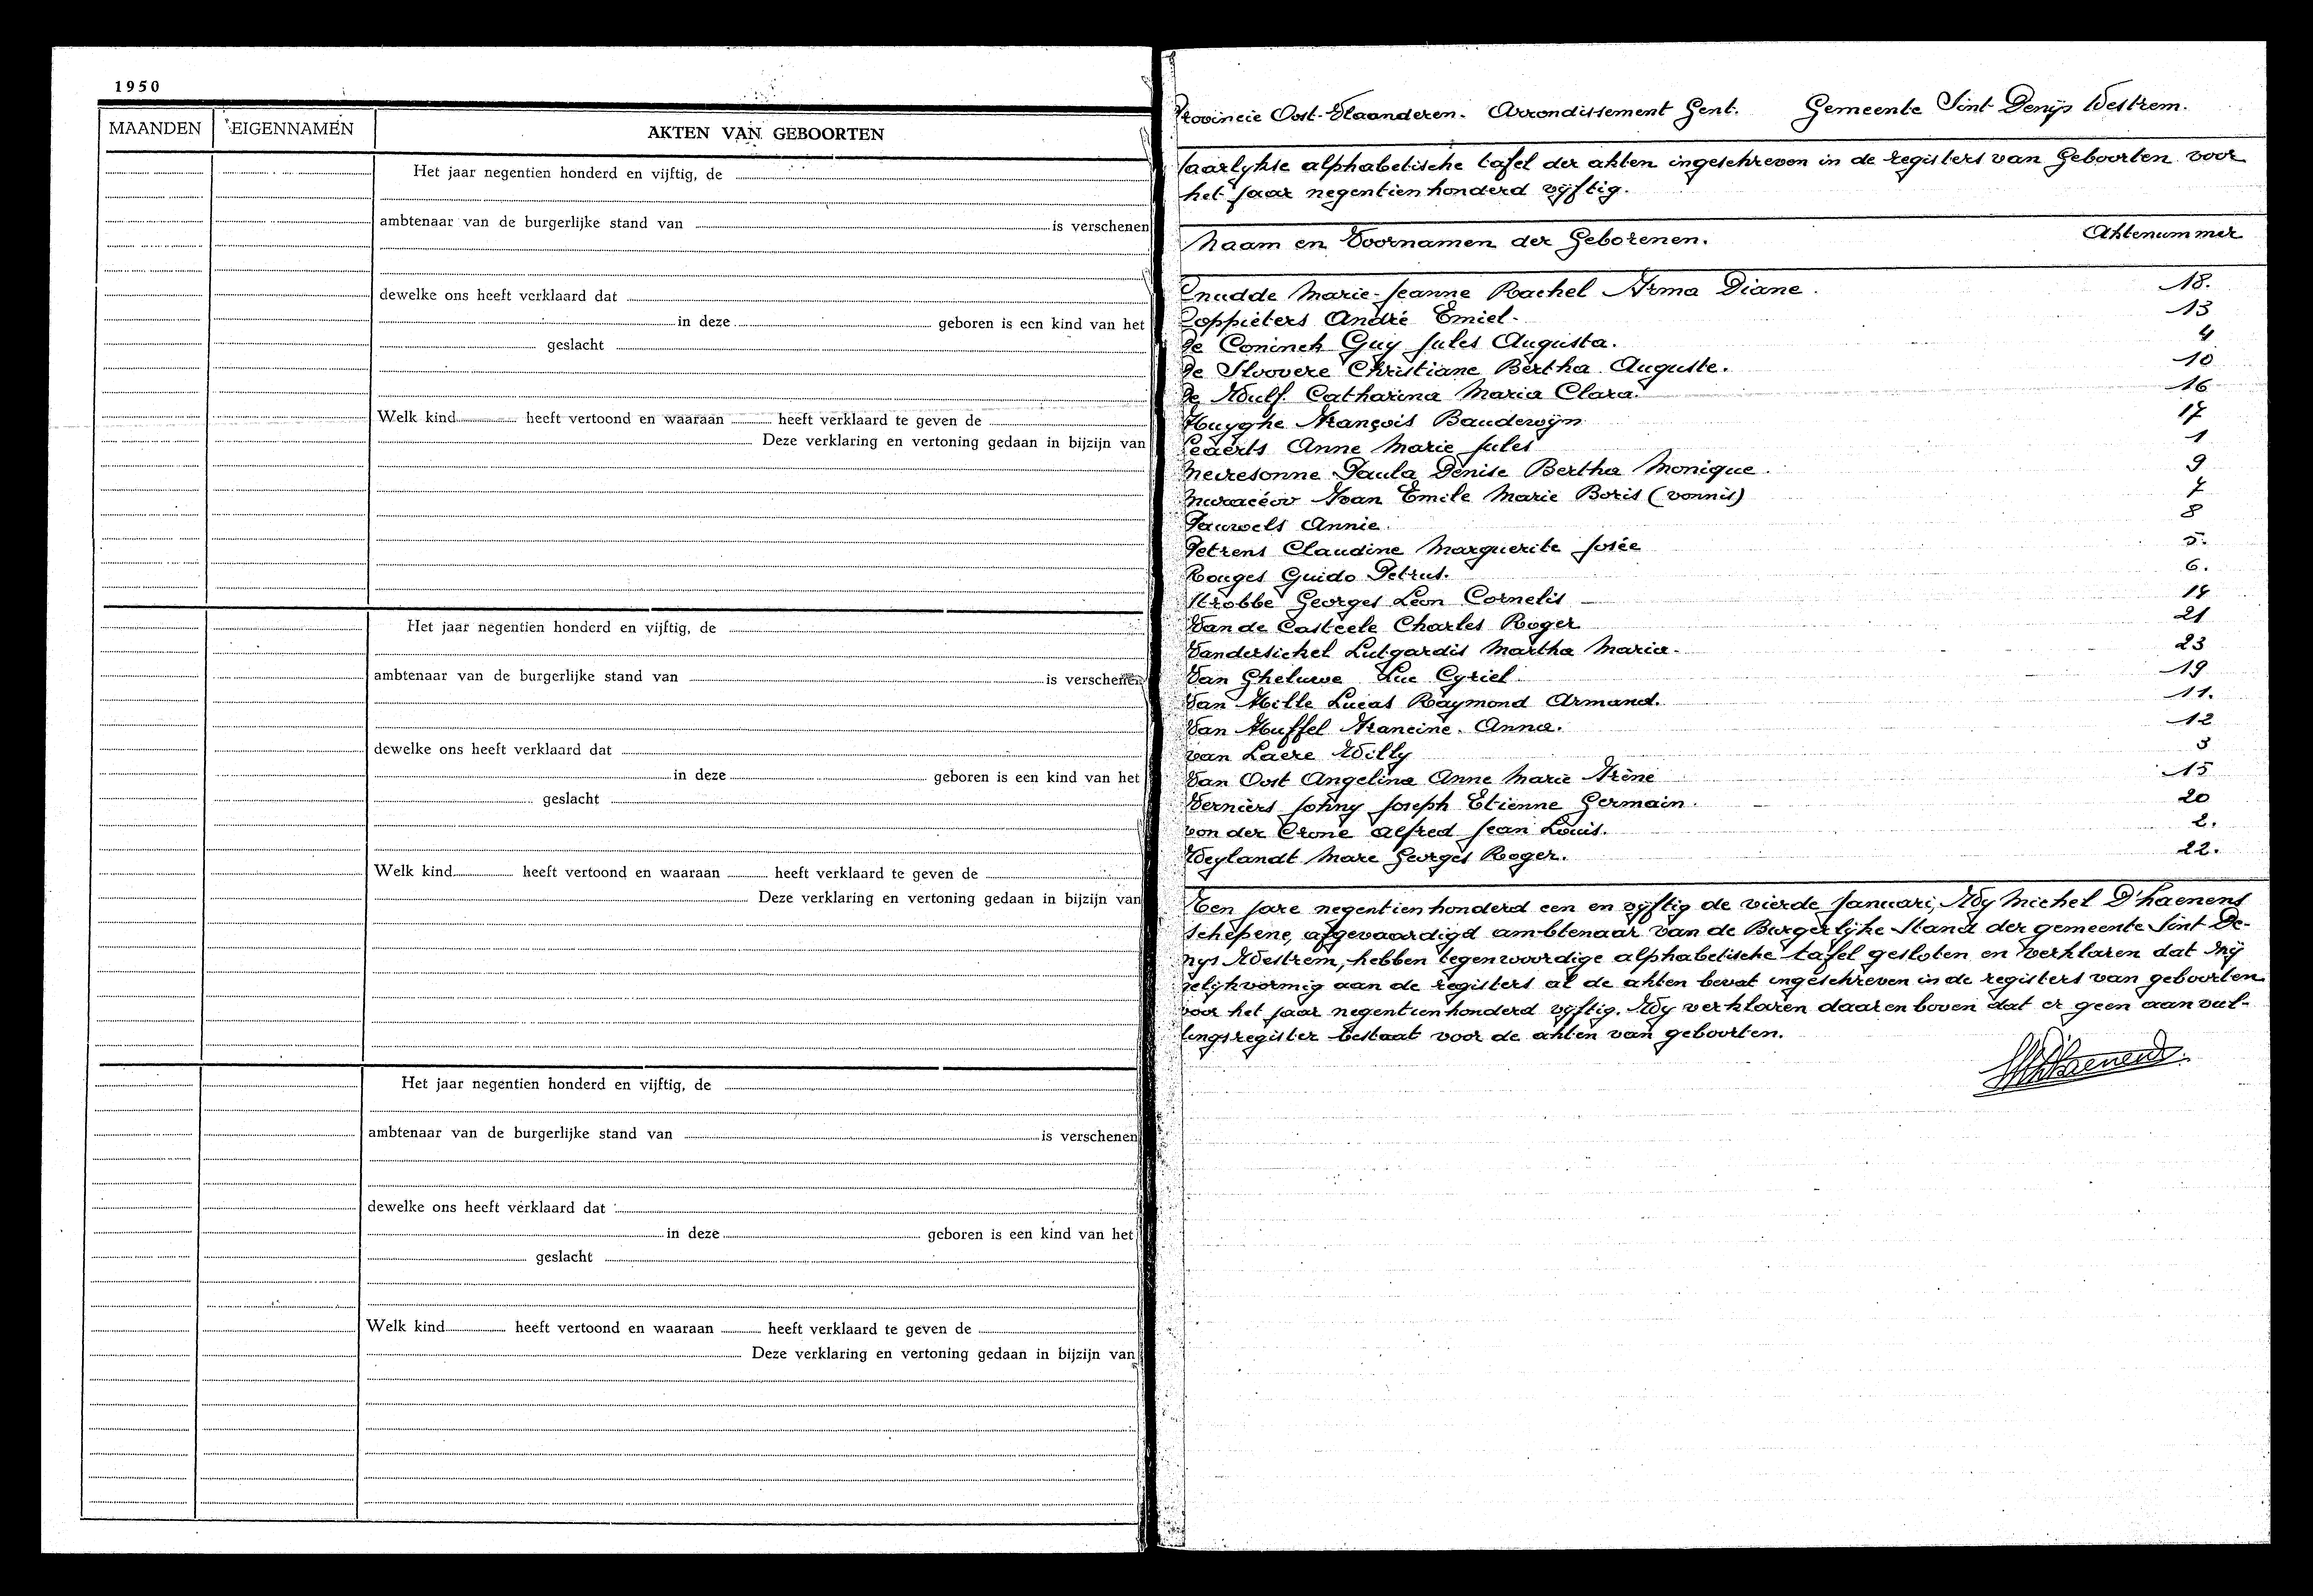 1950
MAANDEN EIGENNAMEN AKTEN VAN GEBOORTEN
Het jaar negentien honderd en vijftig, de
ambtenaar van de burgerlijke stand van is verschenen
dewelke ons heeft verklaard dat
in deze geboren is een kind van het
geslacht
Welk kind heeft vertoond en waaraan heeft verklaard te geven de
Deze verklaring en vertoning gedaan in bijzijn van
Het jaar negentien honderd en vijftig, de
ambtenaar van de burgerlijke stand van is verschenen
dewelke ons heeft verklaard dat
in deze geboren is een kind van het
geslacht
Welk kind heeft vertoond en waaraan heeft verklaard te geven de
Deze verklaring en vertoning gedaan in bijzijn van
Het jaar negentien honderd en vijftig, de
ambtenaar van de burgerlijke stand van is verschenen
dewelke ons heeft verklaard dat
in deze geboren is een kind van het
geslacht
Welk kind heeft vertoond en waaraan heeft verklaard te geven de
Deze verklaring en vertoning gedaan in bijzijn van
Provincie Oost-Vlaanderen. Arrondissement Gent. Gemeente Sint Denijs Westrem.
Jaarlykse alphabetische tafel der akten ingeschreven in de registers van Geboorten voor
het jaar negentienhonderd vijftig.
Naam en Voornamen der Geborenen. Aktenummer
Cnudde Marie-Jeanne Rachel Irma Diane. 18.
Coppieters André Emiel. 13
de Coninck Guy Jules Augusta. 4
de Sloovere Christiane Bertha Auguste. 10
de Wulf Catharina Maria Clara. 16
Huyghe François Baudewijn 17
Leaerts Anne Marie Jules 1
Neiresonne Paula Denise Bertha Monique. 9
Ivan Emile Marie Boris (vonnis) 7
Pauwels Annie. 8
Petrens Claudine Marguerite Josée 5.
Rouges Guido Petrus. 6.
Strobbe Georges Léon Cornelis 14
Van de Casteele Charles Roger 21
Vandersichel Lutgardis Martha Maria. 23
Van Gheluwe Luc Cyriel. 19
Van Hille Lucas Raymond Armand. 11.
Van Huffel Francine Anna. 12
van Laere Willy 3
Van Oost Angelina Anne Marie Irène 15
Verniers Johny Joseph Etienne Germain. 20
von der Crone Alfred Jean Louis. 2.
Weylandt Marc Georges Roger. 22.
Ten jare negentienhonderd een en vijftig de vierde Januari, Wy Michel D'haenens
schepene, afgevaardigd ambtenaar van de Burgerlijke Stand der gemeente Sint De-
nys Westrem, hebben tegenwoordige alphabetische tafel gesloten en verklaren dat zij
gelijkvormig aan de registers al de akten bevat ingeschreven in de registers van geboorten
voor het jaar negentienhonderd vijftig. Wy verklaren daarenboven dat er geen aanvul-
lingsregister bestaat voor de akten van geboorten.
MD'haenens